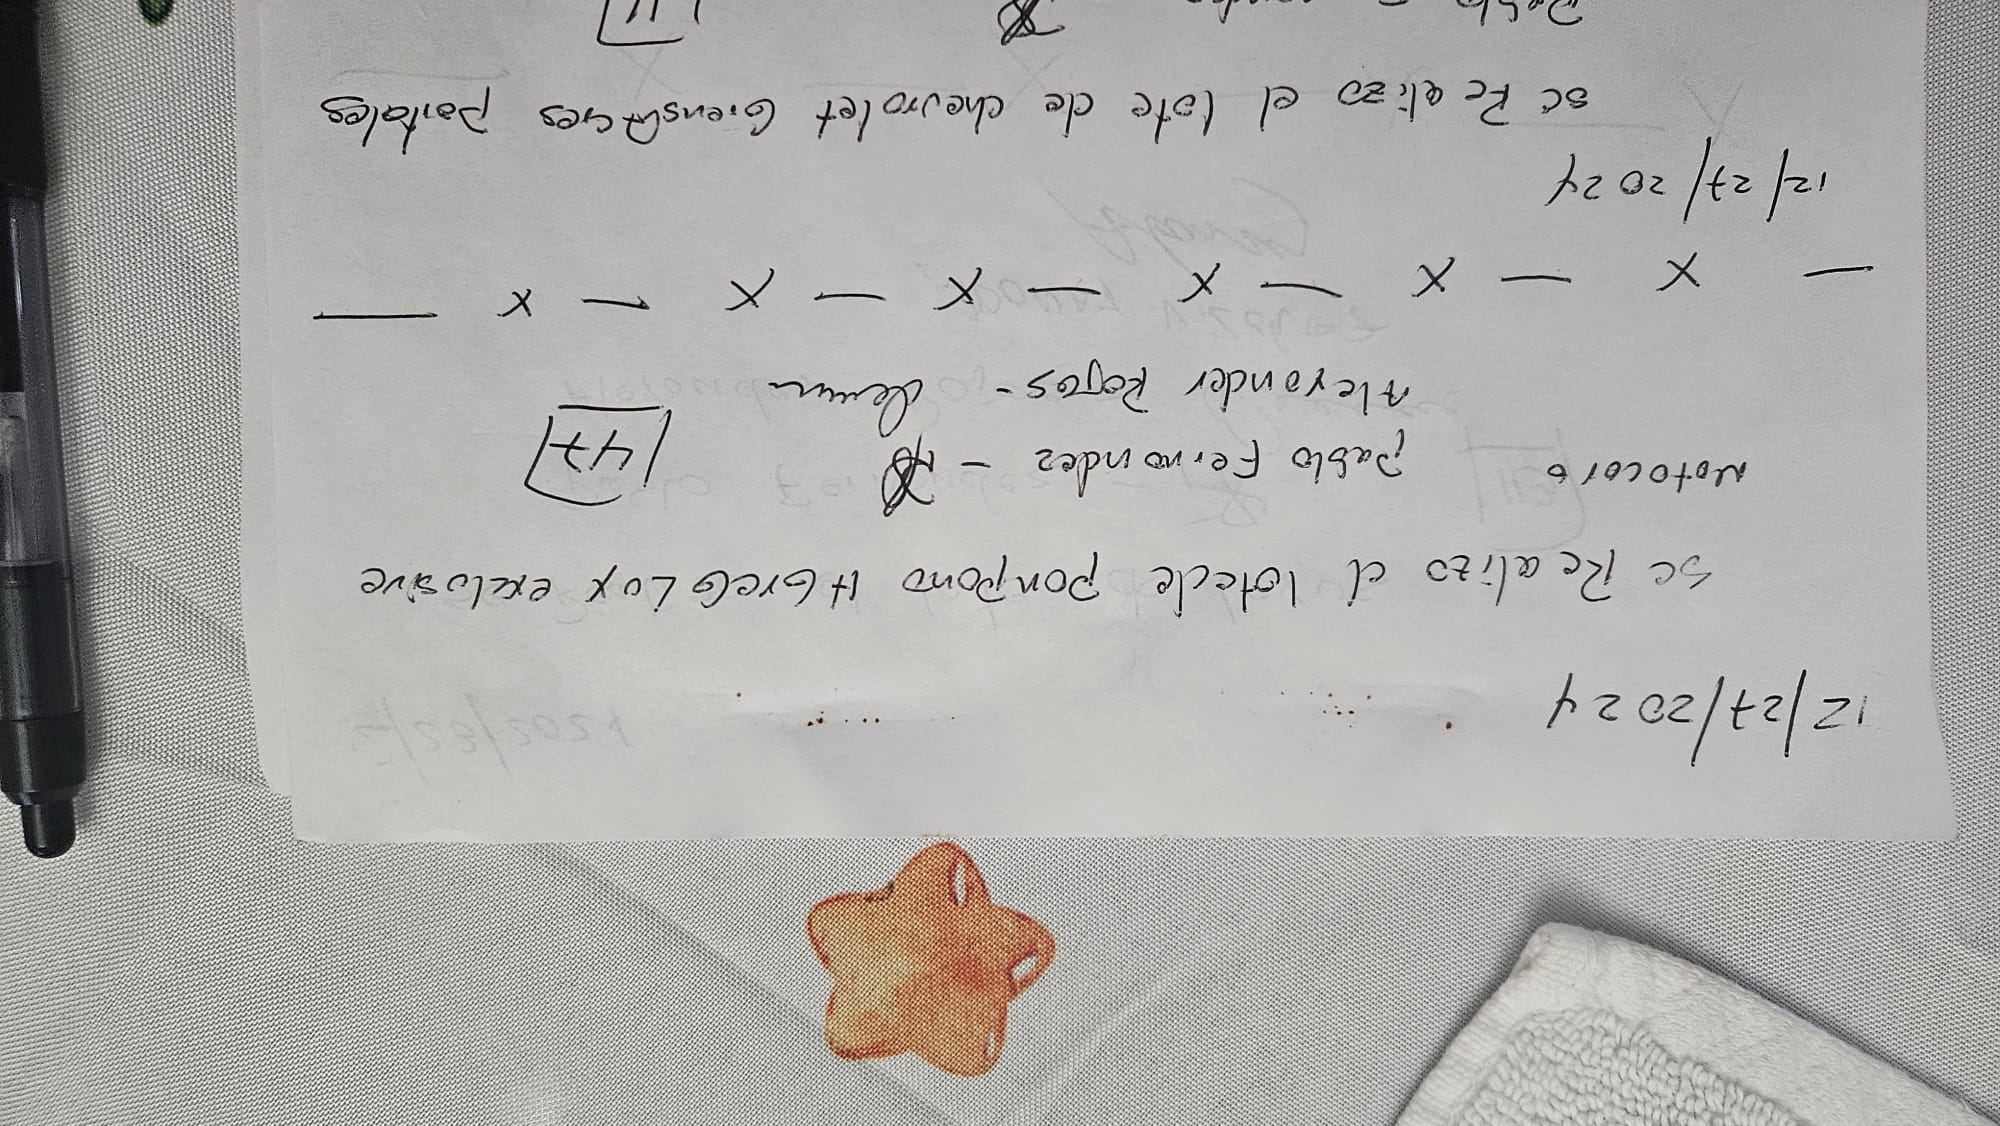 12/27/2024
Se Realizo el lote de ponpono H Greg Lux exclusive
Motocaro Pablo Fernandez - 47
Alexander Rojas -
— x — x — x — x — x — x —
12/27/2024
Se Realizo el lote de chevrolet Greensteres portales
Pablo 11